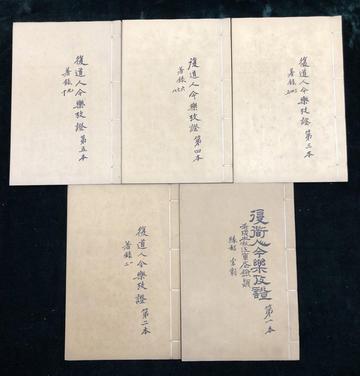 復道人今樂攷證 第三本
著錄三四五
復道人今樂攷證 第四本
著錄六七八
復道人今樂攷證 第五本
著錄九十
復道人今樂攷證
第一本
緣起 宗劇
復道人今樂攷證 第二本
著錄一二